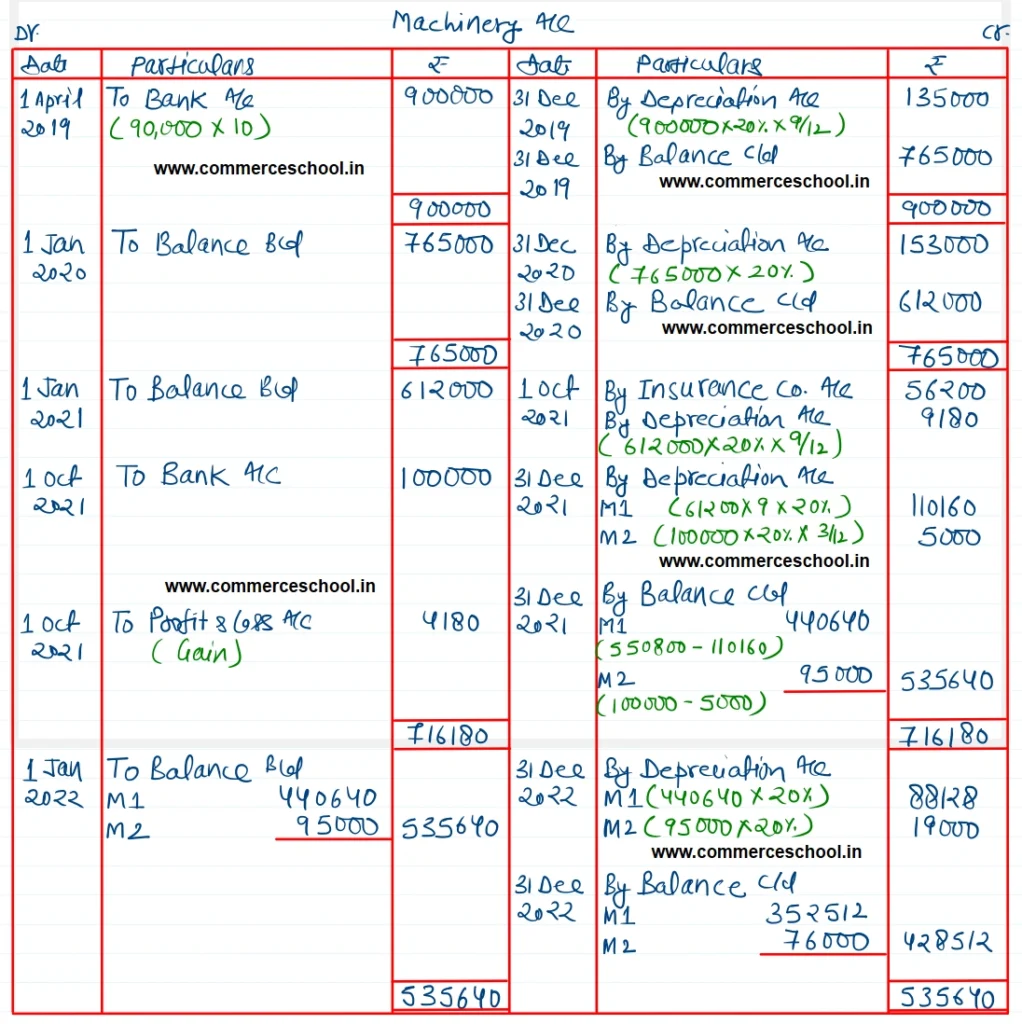 Machinery A/c
Dr. Cr.
Date Particulars ₹ Date Particulars ₹
1 April To Bank A/c 900000 31 Dec By Depreciation A/c 135000
2019 (90,000 X 10) 2019 (900000X20%X9/12)
www.commerceschool.in 31 Dec By Balance C/d 765000
2019 www.commerceschool.in
900000 900000
1 Jan To Balance B/d 765000 31 Dec By Depreciation A/c 153000
2020 2020 (765000X 20%)
31 Dec By Balance C/d 612000
2020 www.commerceschool.in
765000 765000
1 Jan To Balance B/d 612000 1 Oct By Insurance Co. A/c 56200
2021 2021 By Depreciation A/c 9180
(612000X20%X 9/12)
1 Oct To Bank A/C 100000 31 Dec By Depreciation A/c
2021 2021 M1 (61200X 9 X 20%) 110160
M2 (100000X20%X 3/12) 5000
www.commerceschool.in
www.commerceschool.in 31 Dec By Balance C/d
1 Oct To Profit & Loss A/C 4180 2021 M1 440640
2021 (Gain) (550800-110160)
M2 95000 535640
(100000-5000)
716180 716180
1 Jan To Balance B/d 31 Dec By Depreciation A/c
2022 M1 440640 2022 M1 (440640 X 20%) 88128
M2 95000 535640 M2 (95000X20%) 19000
www.commerceschool.in
31 Dec By Balance C/d
2022 M1 352512
M2 76000 428512
535640 535640